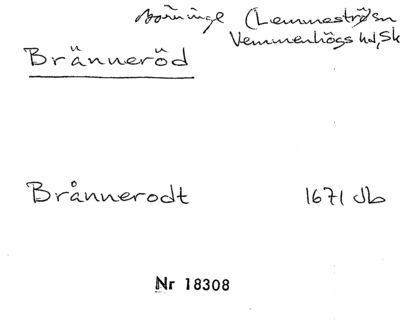 (Lemmeströ sn
Vemmenhögs hd, Sk
Bränneröd
Brånnerodt 1671 Jb
Nr 18308